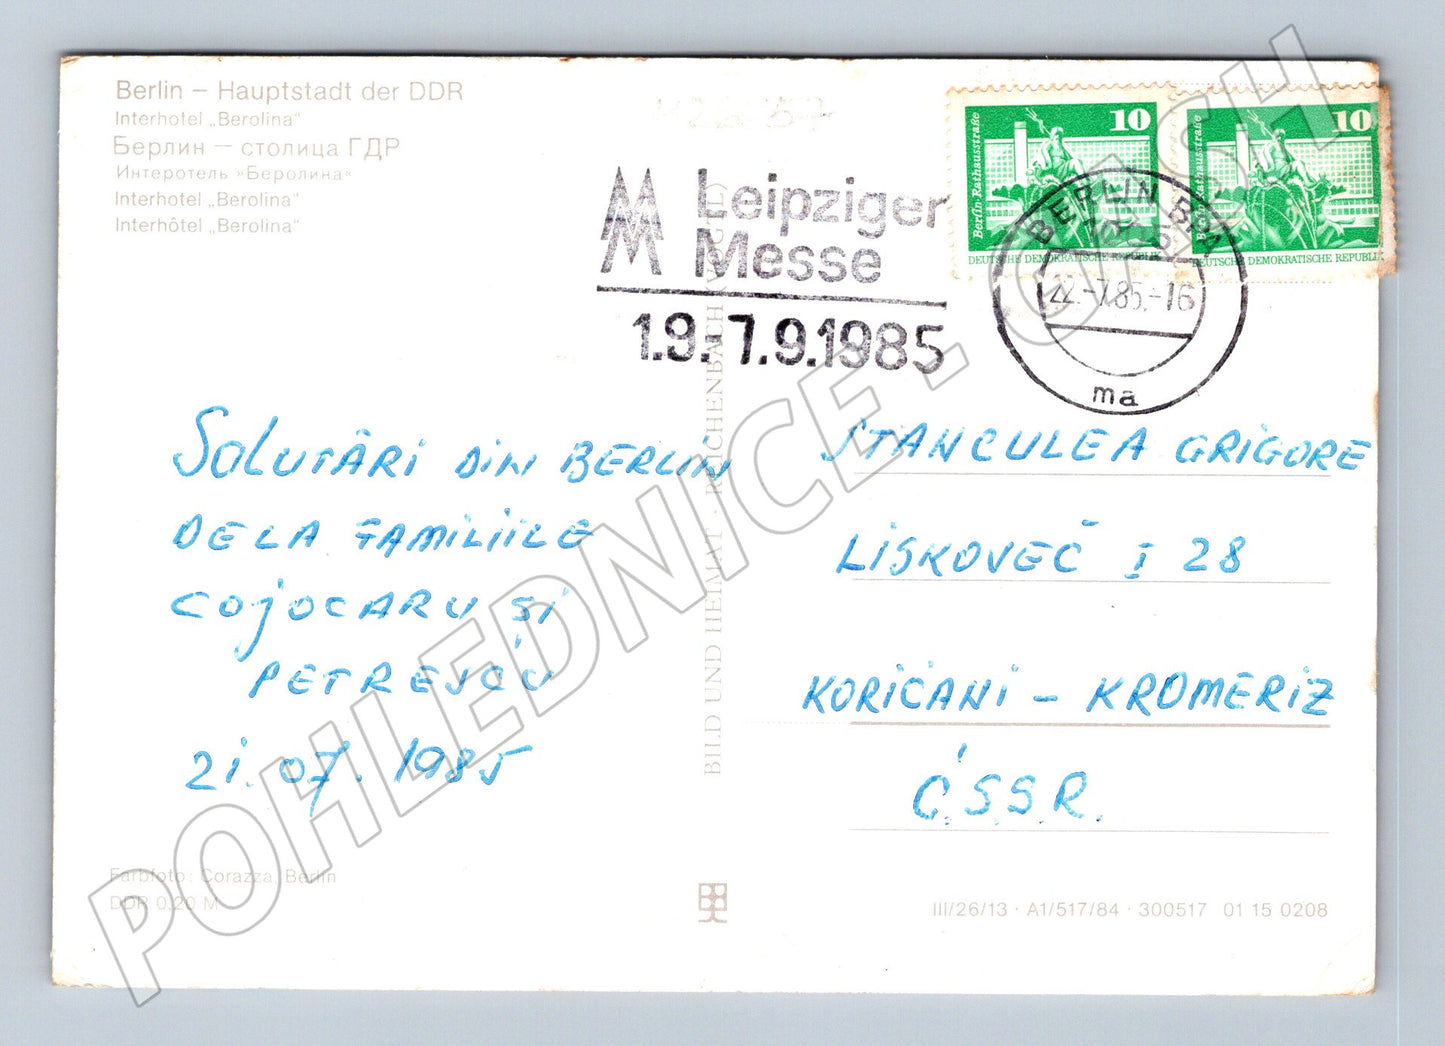 Berlin – Hauptstadt der DDR
Interhotel „Berolina"
Берлин – столица ГДР
Интеротель »Беролина«
Interhotel „Berolina"
Interhôtel „Berolina"
Leipziger
Messe
1.9.-7.9.1985
10
Berlin Rathausstraße
DEUTSCHE DEMOKRATISCHE REPUBLIK
10
DEUTSCHE DEMOKRATISCHE REPUBLIK
BERLIN BPA
22.-7.85.-16
ma
SALUTĂRI DIN BERLIN
DELA FAMILIILE
COJOCARU ȘI
PETRESCU
21.07.1985
STANCULEA GRIGORE
LISKOVEČ I 28
KORIČANI – KROMERIZ
Č.S.S.R.
BILD UND HEIMAT · REICHENBACH (VOGTL)
Farbfoto: Corazza, Berlin
DDR 0,20 M
III/26/13 · A1/517/84 · 300517 01 15 0208
POHLEDNICE - CASH